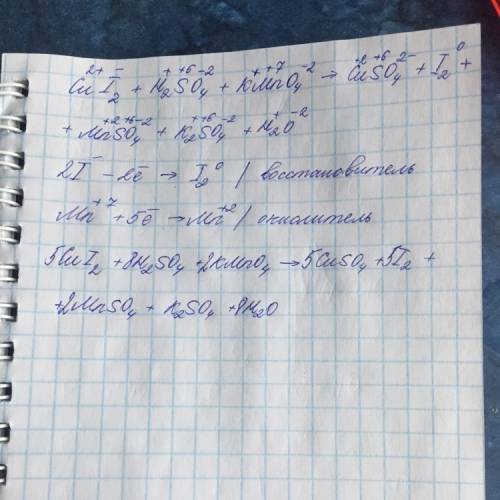 Cu²⁺I₂⁻ + H₂⁺S⁺⁶O₄⁻² + K⁺Mn⁺⁷O₄⁻² → Cu⁺²S⁺⁶O₄²⁻ + I₂⁰ +
+ Mn⁺²S⁺⁶O₄⁻² + K₂⁺S⁺⁶O₄⁻² + H₂⁺O⁻²
2I⁻ - 2ē → I₂⁰ / восстановитель
Mn⁺⁷ + 5ē → Mn⁺² / окислитель
5CuI₂ + 8H₂SO₄ + 2KMnO₄ → 5CuSO₄ + 5I₂ +
+ 2MnSO₄ + K₂SO₄ + 8H₂O